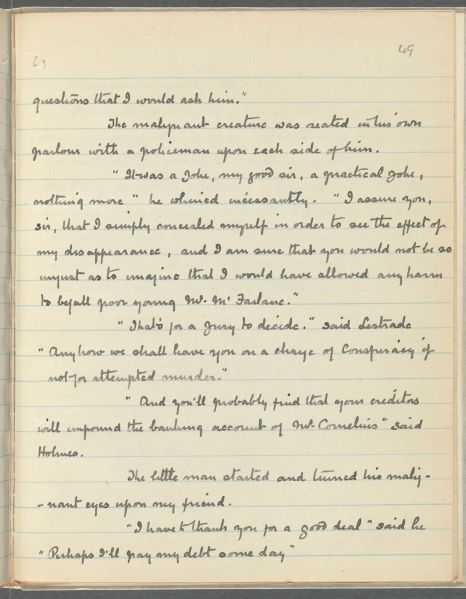 49
63
questions that I would ask him."
The malignant creature was seated in his own
parlour with a policeman upon each side of him.
"It was a joke, my good sir, a practical joke,
nothing more" he whined incessantly. "I assure you,
sir, that I simply concealed myself in order to see the effect of
my disappearance, and I am sure that you would not be so
unjust as to imagine that I would have allowed any harm
to befall poor young Mr. McFarlane."
"That's for a Jury to decide." said Lestrade
"Anyhow we shall have you on a charge of Conspiracy if
not for attempted murder."
"And you'll probably find that your creditors
will impound the banking account of Mr. Cornelius" said
Holmes.
The little man started and turned his malig-
-nant eyes upon my friend.
"I have to thank you for a good deal" said he
"Perhaps I'll pay my debt some day"